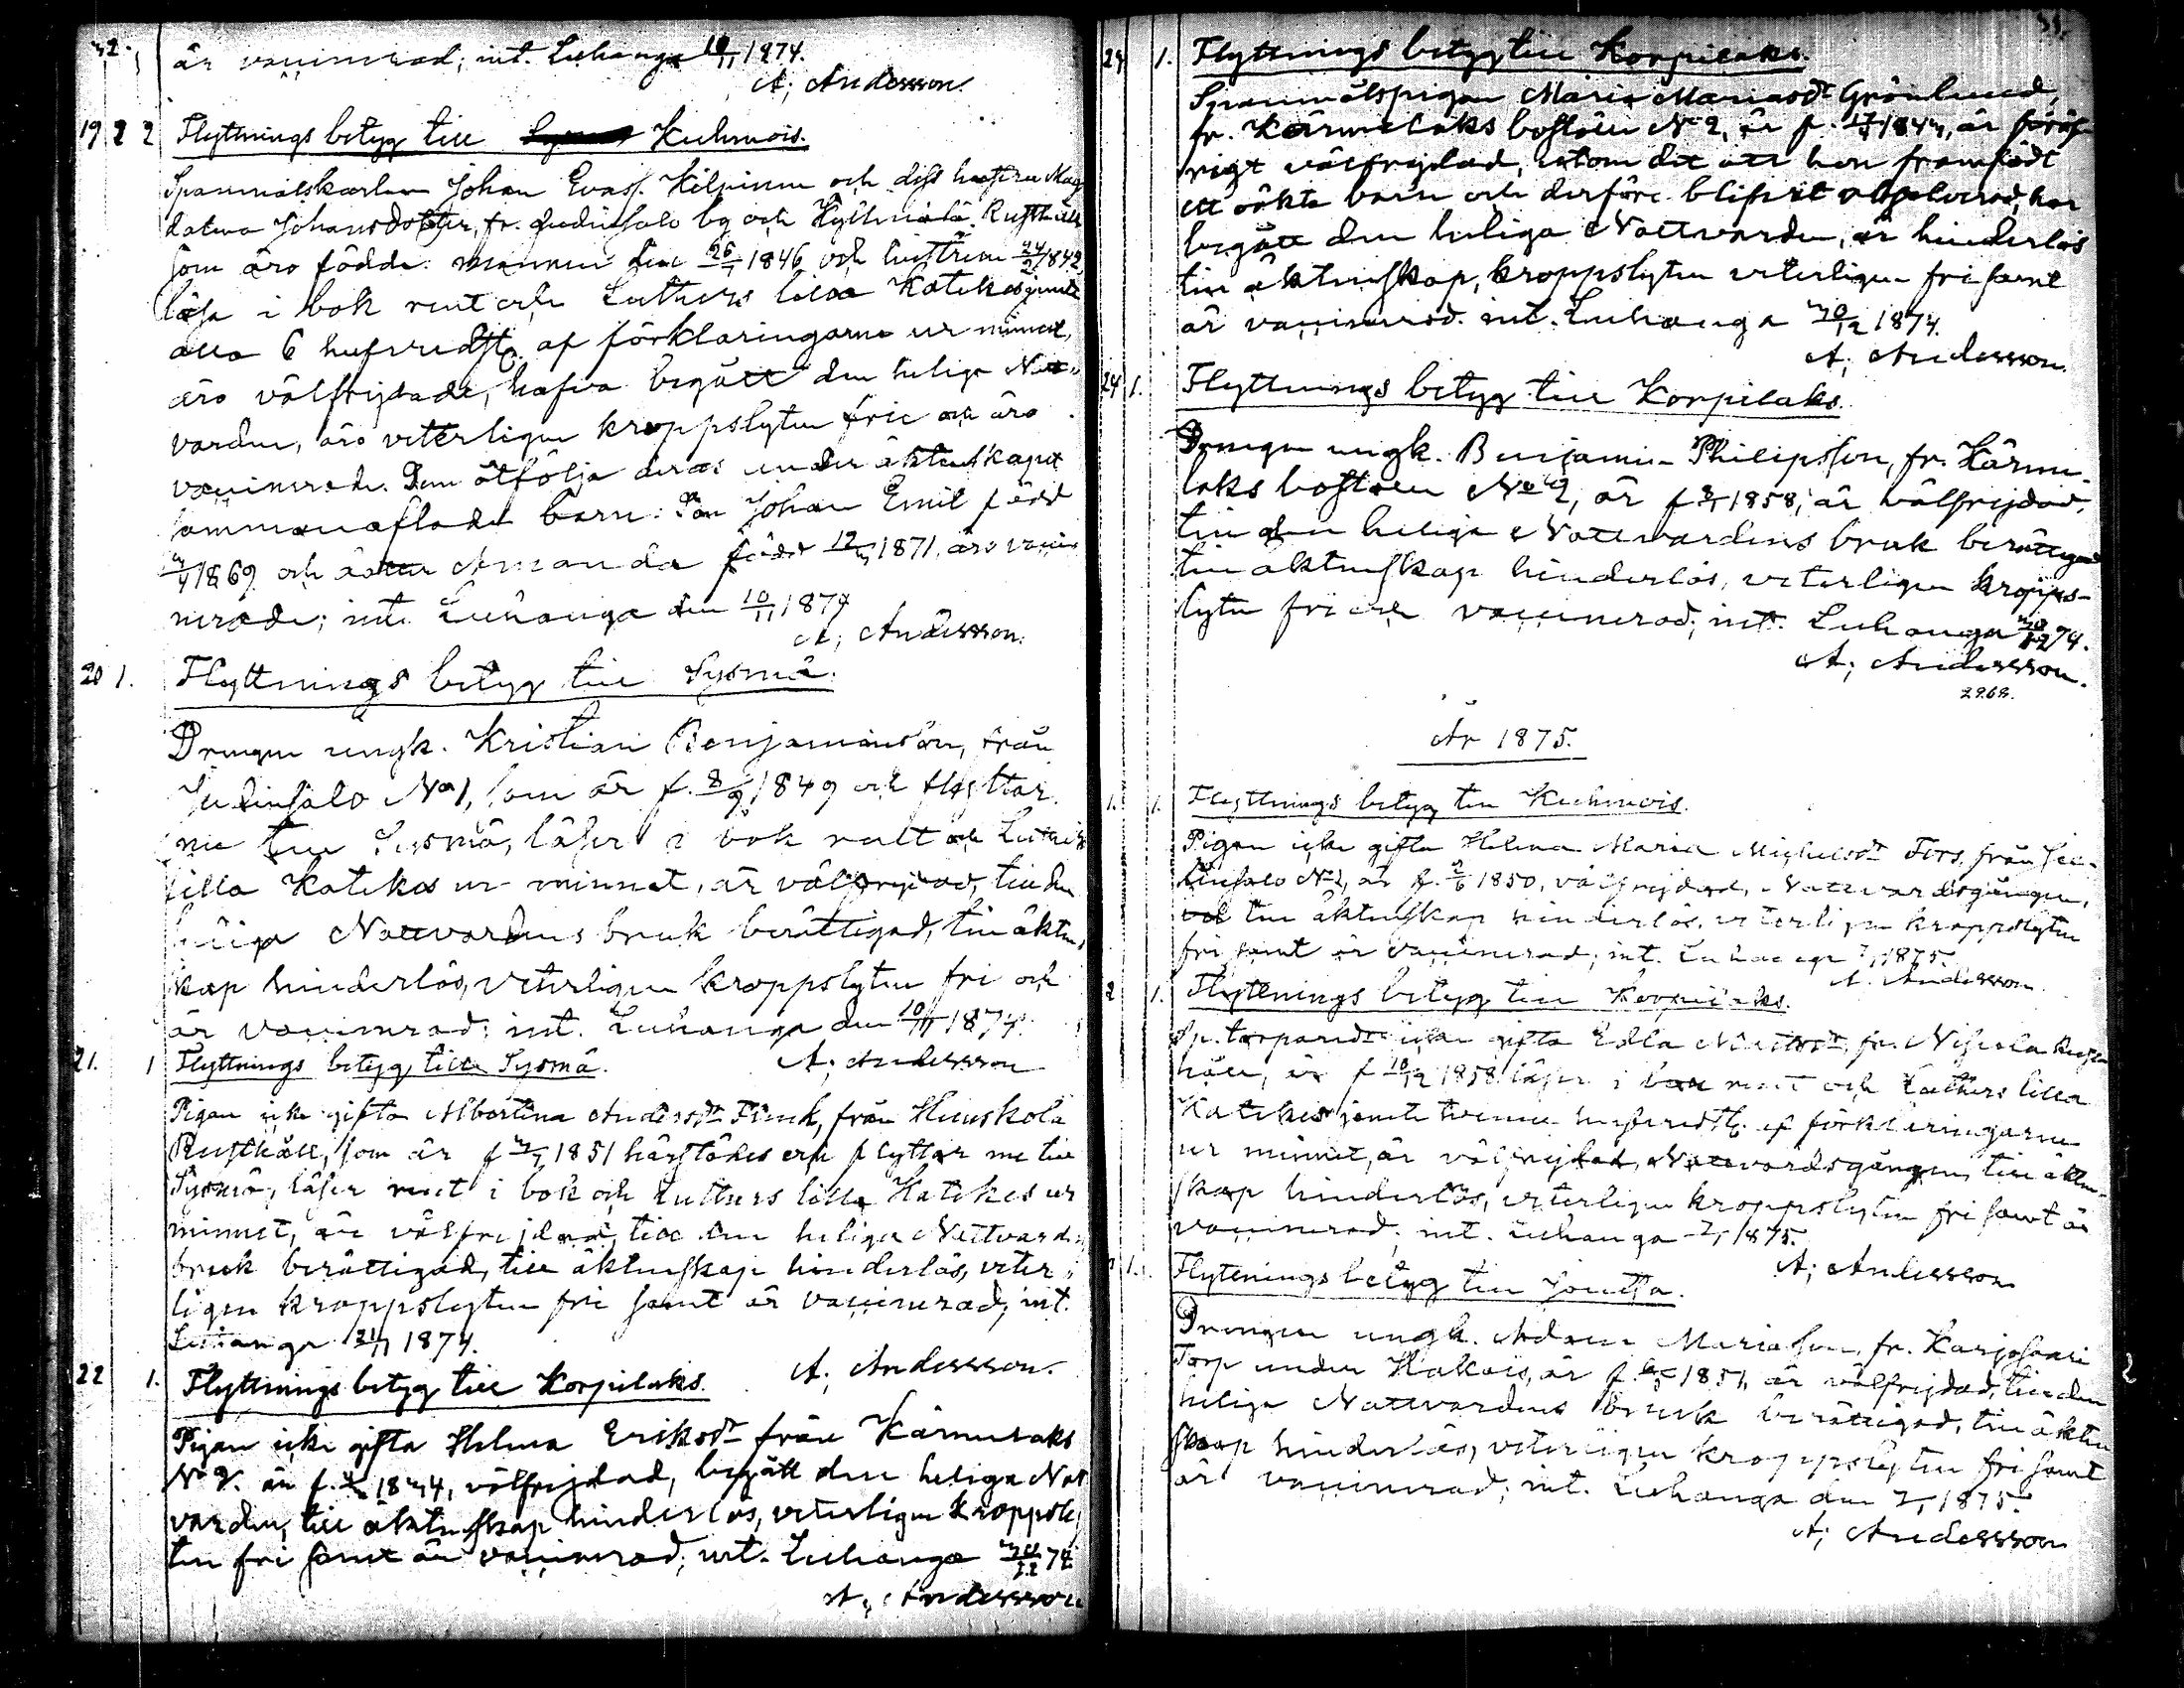 är vaccinerad; int. Luhanga 10/11 1874.
A; Andersson.
19 2 2 Flyttnings betyg till Kuhmois.
Spanmålskarlen Johan Evass. Kilpinen och dess hustru Mag
dalena Johansdotter, fr. Judinsalo by och Rusthåll
som äro födde: mannen den 26/1 1846 och hustrun 24/2 1842,
läsa i bok rent och Luthers lilla Katekes jemte
alla 6 hufvudst. af förklaringarne ur minnet,
äro välfrejdade, hafva begått den heliga Natt-
varden, äro veterligen kroppslyten frie och äro
vaccinerade. Dem åtfölja deras under äktenskapet
sammanaflade barn: Son Johan Emil född
1869 och dotter Amanda född 1871, äro vacci
nerade; int. Luhanga den 10/11 1874
A; Andersson.
20 1. Flyttnings betyg till Sysmä.
Drengen ungk. Kristian Benjaminsson, från
Judinsalo No 1, som är f. 8/9 1849 och flyttar
nu till Sysmä, läser i bok rent och Luthers
lilla Katekes ur minnet, är välfrejdad, till den
heliga Nattvardens bruk berättigad, till äkten-
skap hinderlös, veterligen kroppslyten fri och
är vaccinerad; int. Luhanga den 10/11 1874.
A; Andersson
21. 1 Flyttnings betyg till Sysmä.
Pigan icke gifta Albertina Andersdr Finck, från Hunskola
Rusthåll, som är f 1851 härstädes och flyttar nu till
Sysmä, läser rent i bok och Luthers lilla Katekes ur
minnet, är välfrejdad, till den heliga Nattvardens
bruk berättigad, till äktenskap hinderlös, veter-
ligen kroppslyten fri samt är vaccinerad; int.
Luhanga 21/11 1874.
A; Andersson.
22 1. Flyttnings betyg till Korpilaks.
Pigan icke gifta Helena Eriksdr från Kärmelaks
No 2. är f. 1844, välfrejdad, begått den heliga Natt
varden, till äktenskap hinderlös, veterligen kroppsly
ten fri samt är vaccinerad; int. Luhanga 30/12 74
A; Andersson
1. Flyttnings betyg till Korpilaks.
Spanmålspigan Maria Mariasdr Grönlund,
fr. Kärmelaks boställe No 2, är f. 17/4 1844, är för öf
rigt välfrejdad, utom det att hon framfödt
ett oäkta barn och derföre blifvit absolverad, har
begått den heliga Nattvarden, är hinderlös
till äktenskap, kroppslyten veterligen fri samt
är vaccinerad. int. Luhanga 30/12 1874.
A; Andersson.
24 1. Flyttnings betyg till Korpilaks.
Drengen ungk. Benjamin Philipsson, fr. Kärme-
laks boställe No 2, är f 1858, är välfrejdad,
till den heliga Nattvardens bruk berättigad
till äktenskap hinderlös, veterligen kropps-
lyten fri och vaccinerad; int. Luhanga 30/12 74.
A; Andersson.
År 1875.
1. 1. Flyttnings betyg till Kuhmois.
Pigan icke gifta Helena Maria Michelsdr Fors, från Ju-
dinsalo No 2, är f. 1850, välfrejdad, Nattvardsgången,
till äktenskap hinderlös, veterligen kroppslyten
fri samt är vaccinerad; int. Luhanga 1875.
A. Andersson
2 1. Flyttnings betyg till Korpilaks.
icke gifta Edla fr. Nipola Rust
håll, är f 10/12 1858, läser i bok rent och Luthers lilla
Katekes jemte tvenne hufvudst. af förklaringarne
ur minnet, är välfrejdad, Nattvardsgången, till äkten-
skap hinderlös, veterligen kroppslyten fri samt är
vaccinerad; int. Luhanga 1875.
A; Andersson
1. Flyttnings betyg till Joutsa.
Drengen ungk. Adam Mariason, fr. Karjosaari
Torp under Hakois, är f. 1851, är välfrejdad, till den
heliga Nattvardens bruk berättigad, till äkten
skap hinderlös, veterligen kroppslyten fri samt
är vaccinerad; int. Luhanga den 1875.
A; Andersson